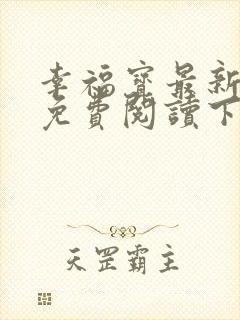 幸福寶最新
免費閱讀下
天罡霸主